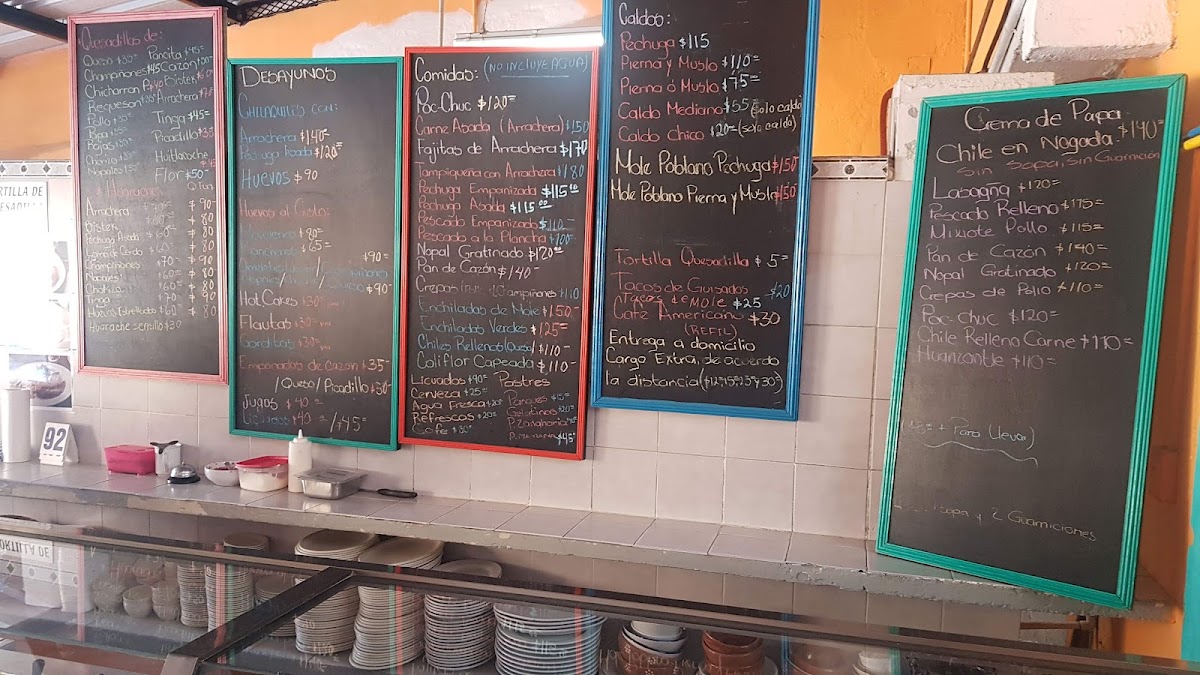 Quesadillas de:
Queso $30=
Champiñones $45
Chicharron
Requeson
Pollo $30=
Papa
Chorizo
Nopales
Pancita $45=
Cazon
Bistek
Arrachera
Tinga $45=
Picadillo $38
Huitlacoche
Flor $50=
Huaraches
Arrachera $90
Bistek $80
Pechuga Asada $60= $80
$80
Champiñones $70= $90
Nopales $60= $80
Chorizo $60= $80
Tinga $70 $90
Huevos Estrellados $60= $80
Huarache sencillo $30
DESAYUNOS
CHILAQUILES CON:
Arrachera $140=
Pechuga Asada $120=
HUEVOS $90
Huevos al Gusto:
$65=
$90=
$90=
Hot Cakes $30=
Flautas $30=
Gorditas $30=
Empanadas de cazon $35=
/Queso/Picadillo $30=
Jugos $40=
Licuados $40=/$45=
Comidas: (NO INCLUYE AGUA)
Poc-Chuc $120=
Carne Asada (Arrachera) $150
Fajitas de Arrachera $170
Tampiqueña con Arrachera $180
Pechuga Empanizada $115.00
Pechuga Asada $115.00
Pescado Empanizado $110=
Pescado a la Plancha $100=
Nopal Gratinado $120=
Pan de Cazón $140=
Crepas Champiñones $110
Enchiladas de Mole $150=
Enchiladas Verdes $125=
Chiles Rellenos (Queso) $110=
Califlor Capeada $110=
Licuados $40=
Cerveza $25=
Agua Fresca $20=
Refrescos $20=
Cafe $30=
Postres
Panques $15=
Gelatinas $20=
P. Zanahoria
$45=
Caldos:
Pechuga $115
Pierna y Muslo $110=
Pierna ó Muslo $75=
Caldo Mediano $55= (solo caldo)
Caldo Chico $20= (solo caldo)
Mole Poblano Pechuga $150
Mole Poblano Pierna y Muslo $150
Tortilla Quesadilla $5=
Tacos de Guisados $20
Tacos de MOLE $25
Café Americano $30
(REFIL)
Entrega a domicilio
Cargo Extra, de acuerdo
la distancia ($12=15=25=30=)
Crema de Papa
Chile en Nogada $140=
Sin Sopa, Sin Guarnición
Lasagna $120=
Pescado Relleno $175=
Mixiote Pollo $115=
Pan de Cazón $140=
Nopal Gratinado $120=
Crepas de Pollo $110=
Poc-Chuc $120=
Chile Relleno Carne $110=
Huanzontle $110=
+ Para Llevar)
sopa y 2 Guarniciones
92
TORTILLA DE